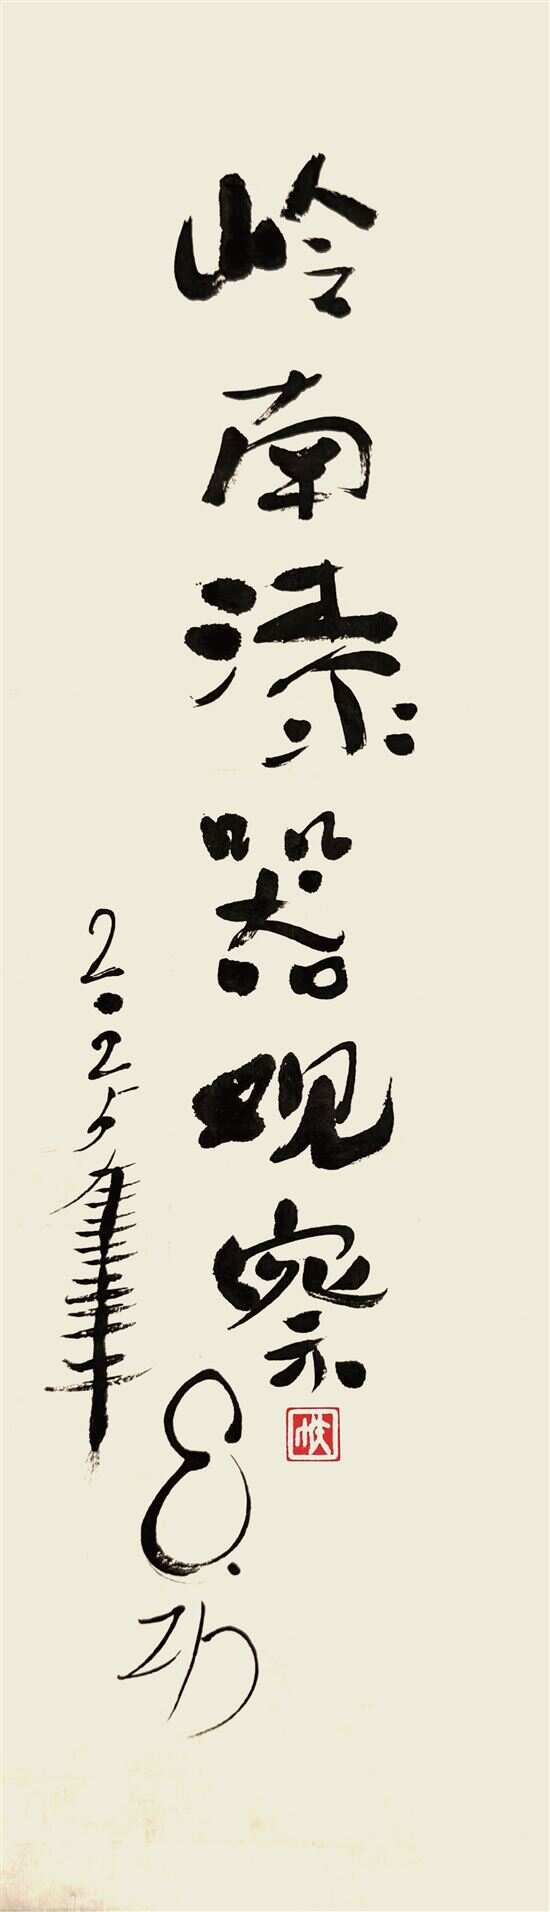 岭南漆器观察
2025年